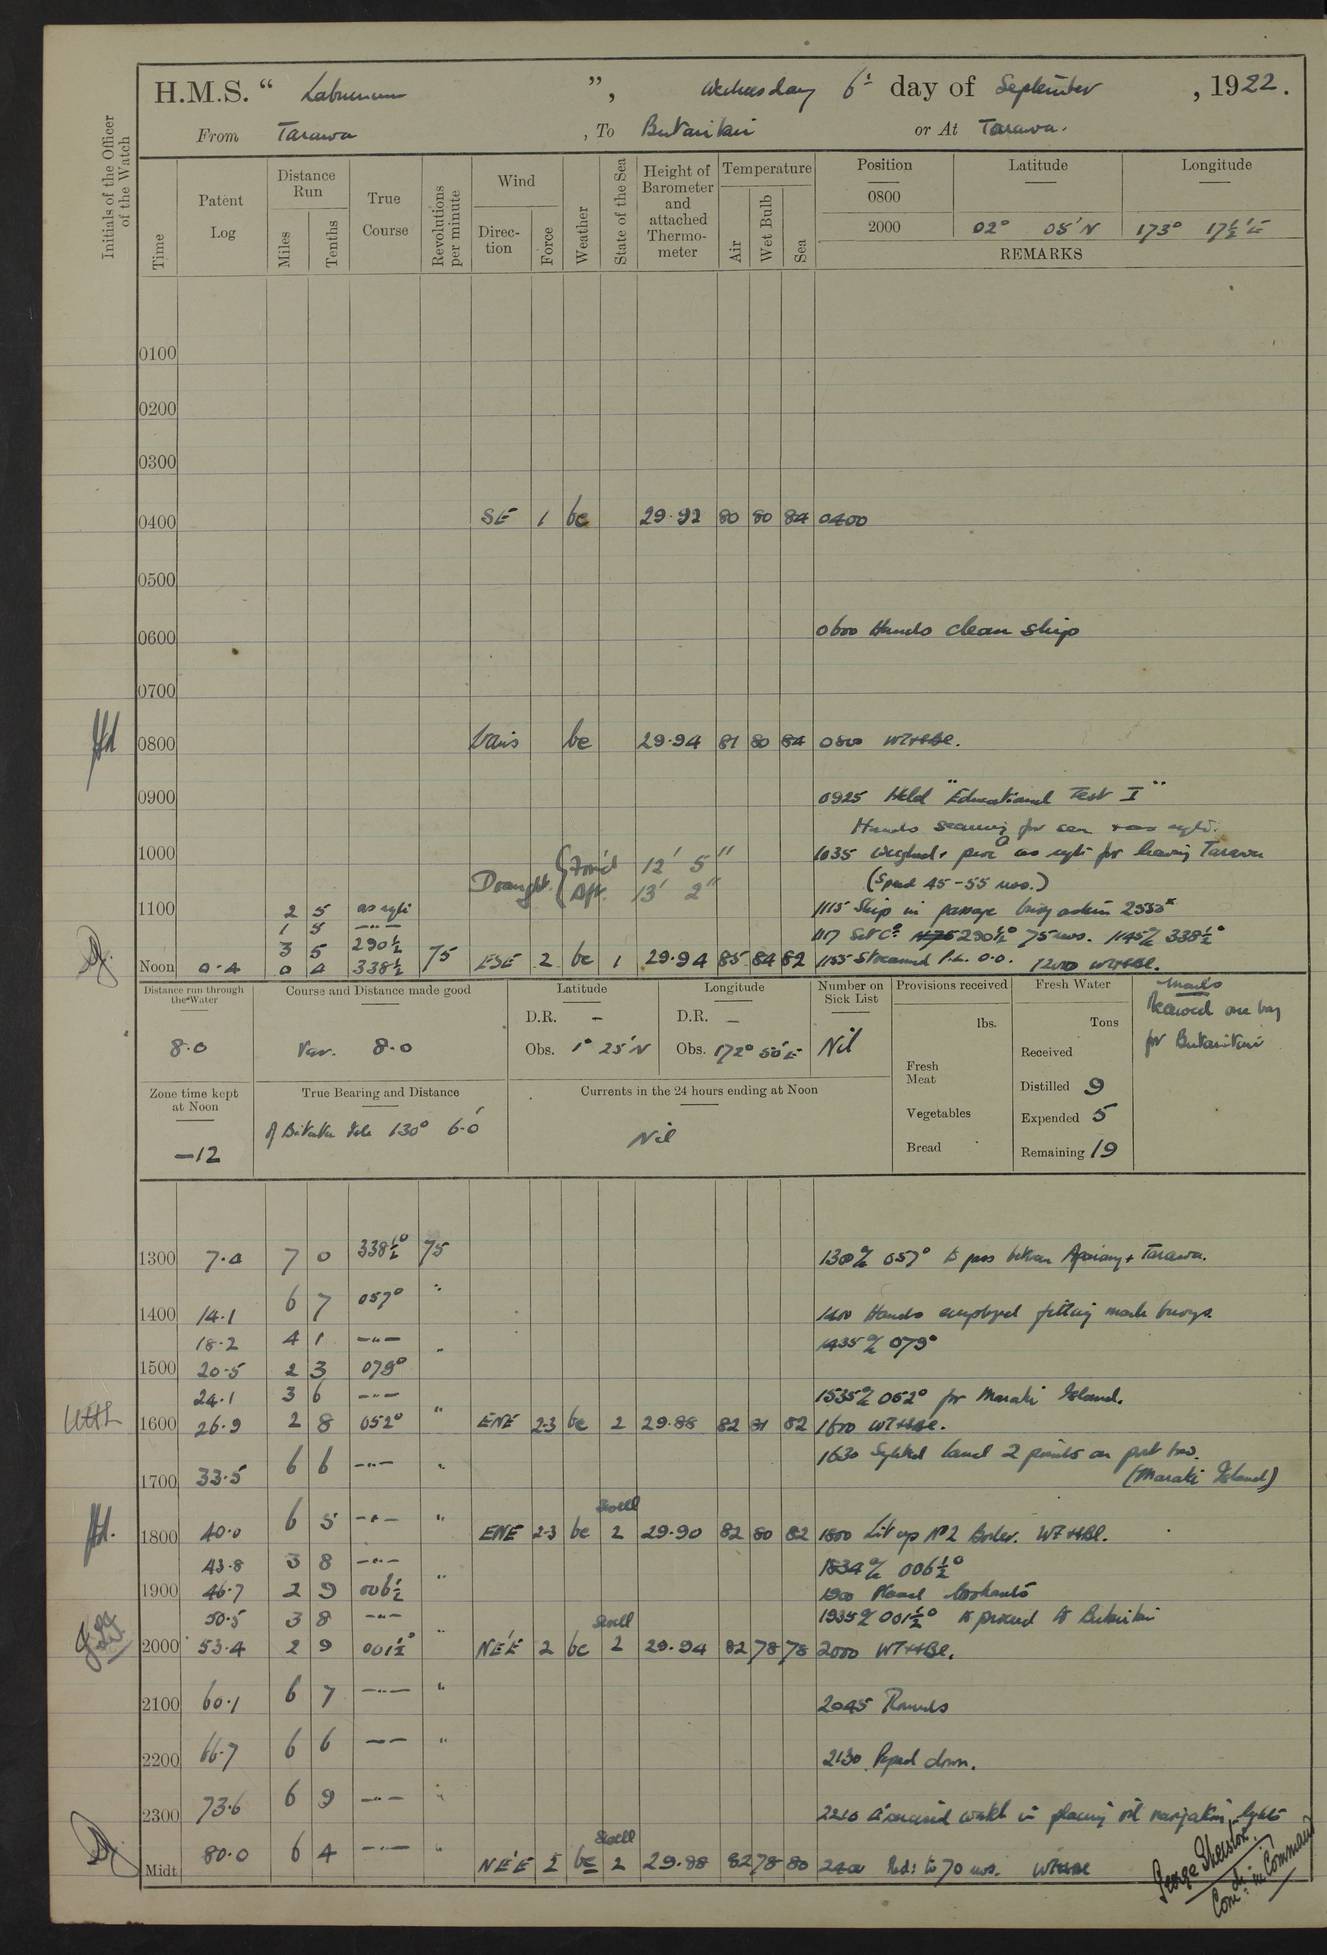 H.M.S. “ Laburnum ”, Wednesday 6th day of September, 1922.
From Tarawa, To Butaritari or At Tarawa.
Initials of the Officer of the Watch
Time
Patent Log
Distance Run
Miles
Tenths
True Course
Revolutions per minute
Wind
Direction
Force
Weather
State of the Sea
Height of Barometer and attached Thermometer
Temperature
Air
Wet Bulb
Sea
Position Latitude Longitude
0800
2000 02° 05' N 173° 17½' E
REMARKS
0100
0200
0300
0400 SE 1 bc 29.92 80 80 84 0400
0500
0600 0600 Hands clean ship
0700
0800 Vars bc 29.94 81 80 84 0800 WT+HBl.
0900 0925 Held "Educational Test I"
Hands securing for sea + as reqte.
1000 1035 Weighed + proc'd as reqte for leaving Tarawa
Draught { For'd 12' 5"
Aft. 13' 2"
(Speed 45-55 revs.)
1100 2 5 as reqte 1115 Ship in passage
1 5 —"— 1117 Set Co. 290½° 75 revs. 1145 a/c 338½°
3 5 290½
Noon 0.4 0 4 338½ 75 ESE 2 bc 1 29.94 85 84 82 1155 Streamed P.L. 0.0. 1200 WT+HBl.
Distance run through the Water
8.0
Course and Distance made good
Var. 8.0
Latitude
D.R. –
Obs. 1° 25' N
Longitude
D.R. –
Obs. 172° 50' E
Number on Sick List
Nil
Provisions received
lbs.
Fresh Meat
Vegetables
Bread
Fresh Water
Tons
Received
Distilled 9
Expended 5
Remaining 19
Mails
Received one bag
for Butaritari
Zone time kept at Noon
–12
True Bearing and Distance
130° 6.0'
Currents in the 24 hours ending at Noon
Nil
1300 7.4 7 0 338½° 75 1300 a/c 057° to pass between Apaiang + Tarawa.
1400 14.1 6 7 057° " 1400 Hands employed fitting mark buoys.
18.2 4 1 —"— " 1435 a/c 079°
1500 20.5 2 3 079°
24.1 3 6 —"— 1535 a/c 052° for Maraki Island.
1600 26.9 2 8 052° " ENE 2-3 bc 2 29.88 82 81 82 1600 WT+HBl.
1630 Sighted land 2 points on port bow.
1700 33.5 6 6 —"— " (Maraki Island)
1800 40.0 6 5 —"— " ENE 2-3 bc Swell 2 29.90 82 80 82 1800 Lit up No 2 Boiler. WT+HBl.
43.8 3 8 —"— 1834 a/c 006½°
1900 46.7 2 9 006½ " 1900 Placed lookouts
50.5 3 8 —"— 1935 a/c 001½° to proceed to Butaritari
2000 53.4 2 9 001½° " NE'E 2 bc Swell 2 29.94 82 78 78 2000 WT+HBl.
2100 60.1 6 7 —"— " 2045 Rounds
2200 66.7 6 6 —"— " 2130 Piped down.
2300 73.6 6 9 —"— " 2210 Exercised watch in placing oil navigation lights
Midt 80.0 6 4 —"— " NE'E 2 bc Swell 2 29.88 82 78 80 2400 Red: to 70 revs. WT+HBl
George Thurston
Comdr in Command